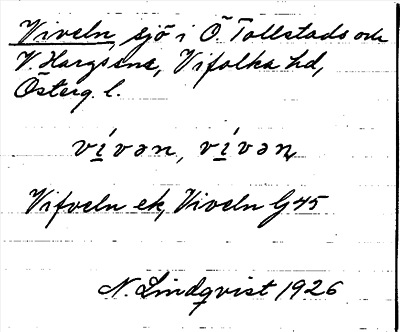 Viveln, sjö i Ö. Tollstads och
V. Hargs sna, Vifolka hd,
Österg. l.
ví̲vən, ví̲vən
Vifveln ek, Viveln G45
N. Lindqvist 1926